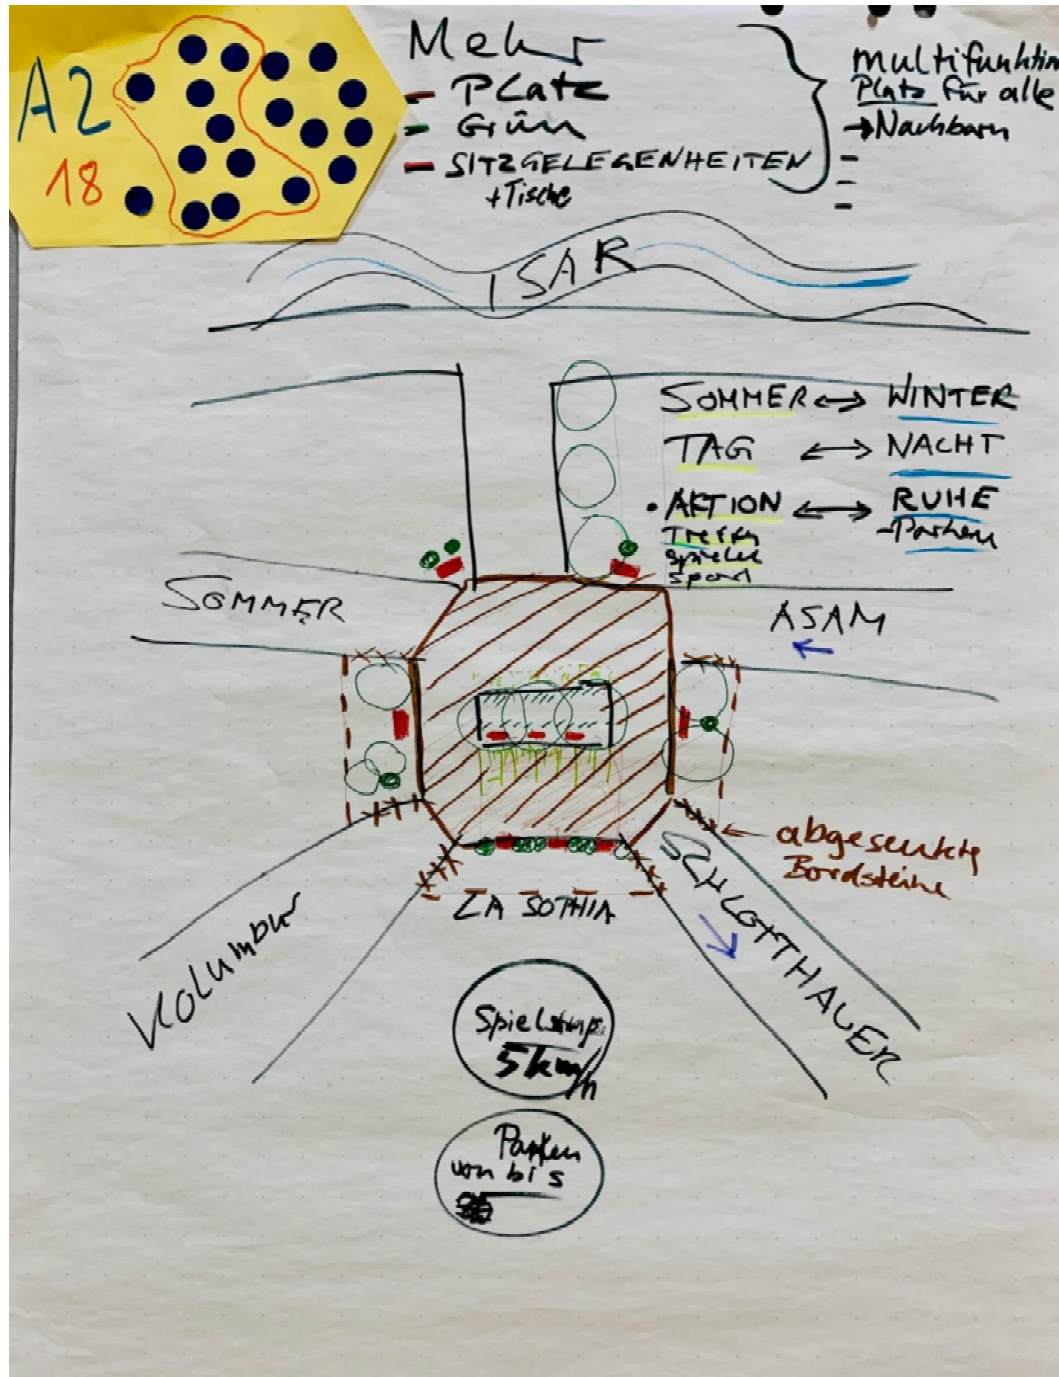 A2
18
Mehr
- Platz
- Grün
- SITZGELEGENHEITEN
+Tische
multifunktion
Platz für alle
→ Nachbarn
-
-
-
ISAR
SOMMER ↔ WINTER
TAG ↔ NACHT
• AKTION ↔ RUHE
Treffen
-Parken
Spielen
Sport
SOMMER
ASAM
abgesenkte
Bordsteine
ZA SOPHIA
Kolumbus
SCHLOTTHAUER
5km/h
Parken
von bis